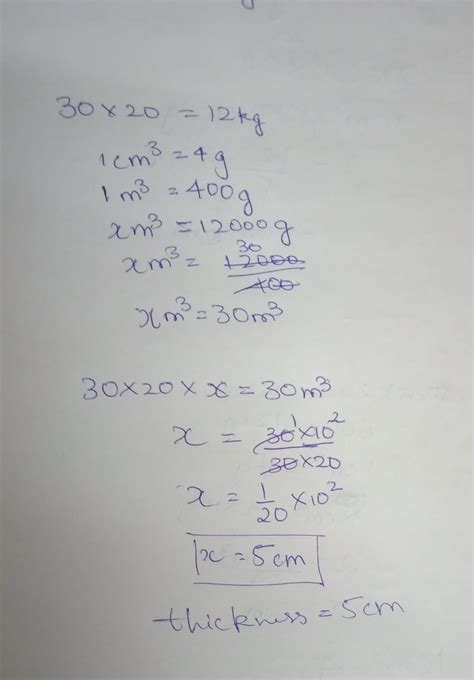 30 × 20 = 12kg
1cm³ = 4g
1m³ = 400g
xm³ = 12000g
xm³ = 12000/400 30
xm³ = 30m³
30×20×x = 30m³
x = 30×10²/30×20 1
x = 1/20 ×10²
x = 5cm
thickness = 5cm